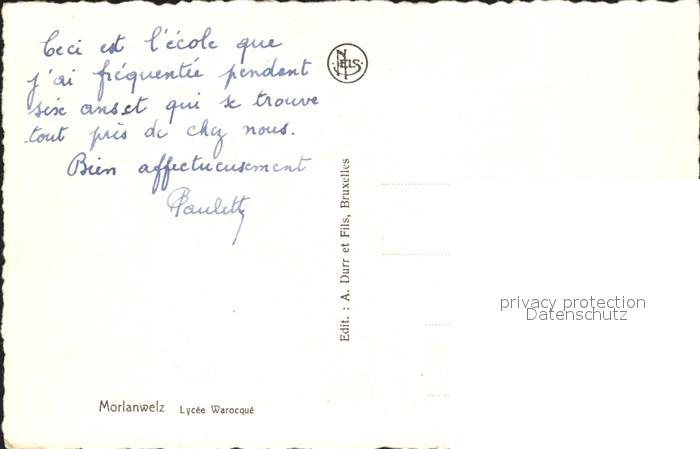 Ceci est l'école que
j'ai fréquentée pendent
six ans et qui se trouve
tout près de chez nous.
Bien affectueusement
Paulette
NELS
Edit. : A. Durr et Fils, Bruxelles
privacy protection
Datenschutz
Morlanwelz Lycée Warocqué